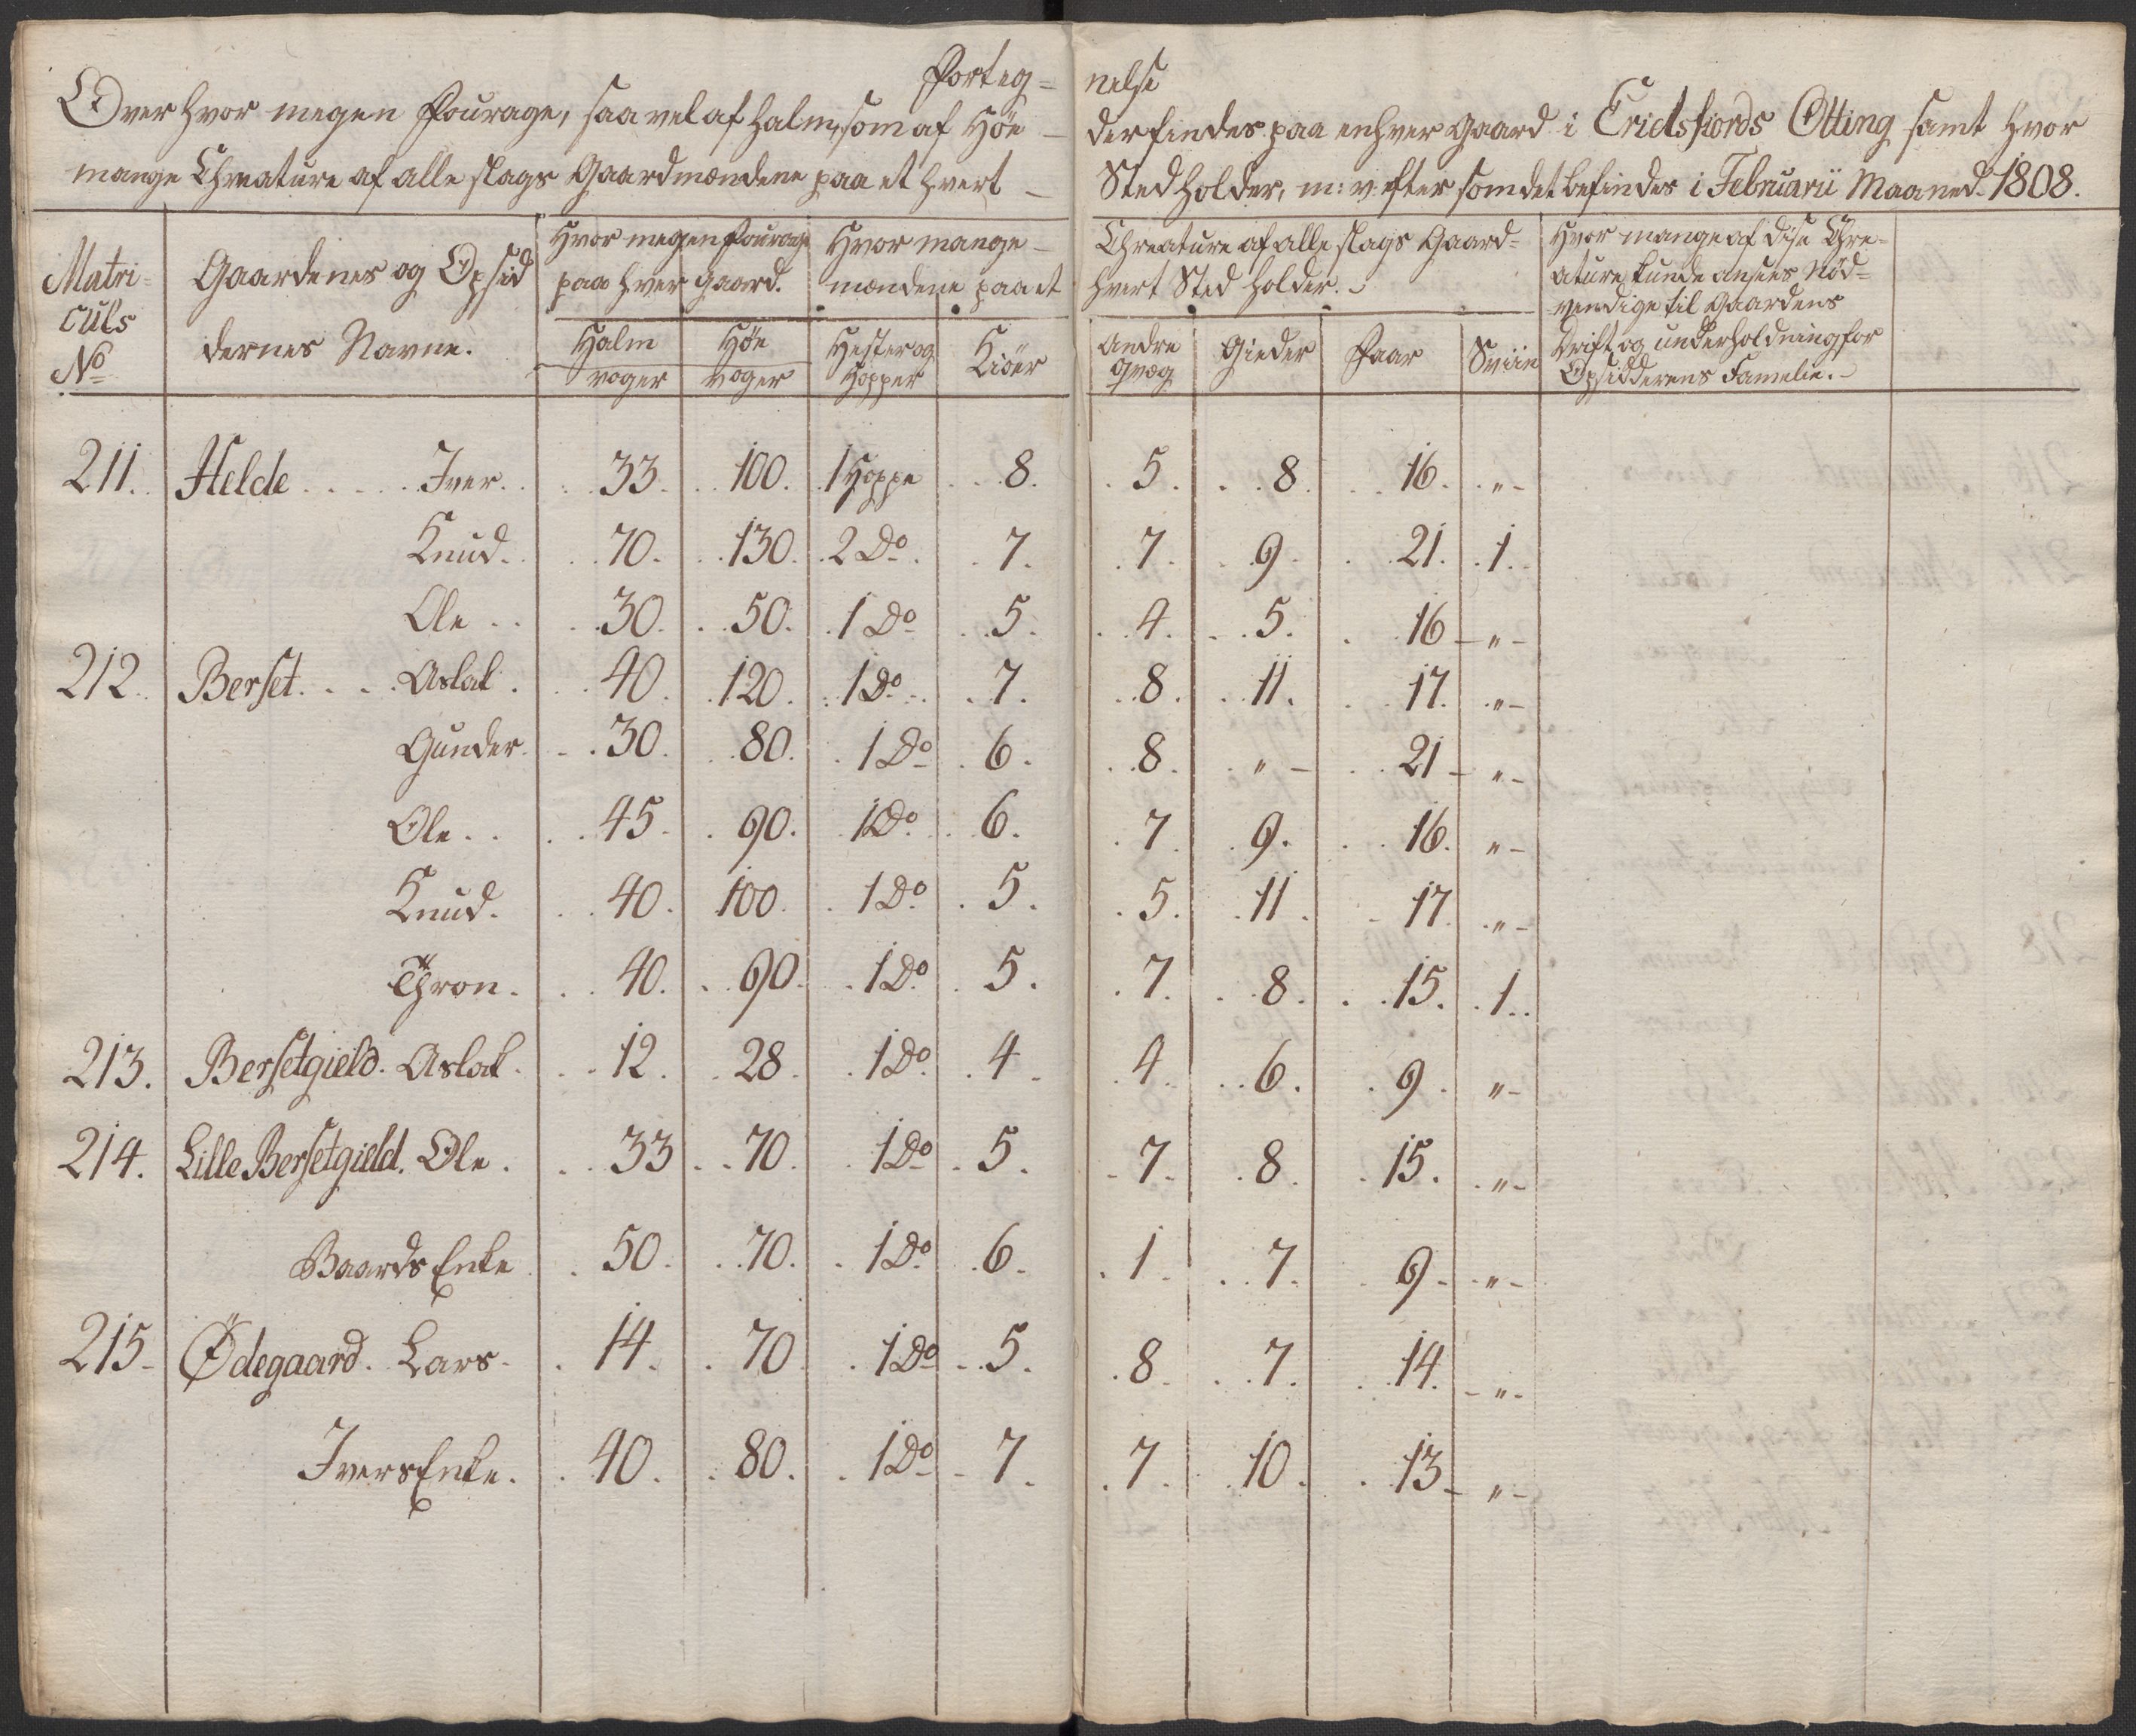 Forteg=nelse
Over hvor megen Fourage, saavel af Halm, som af Høe – der findes paa enhver Gaard i Erictsfiords Otting samt hvor
mange Chreature af alle slags Gaardmændene paa et hvert – Sted holder, m: v: efter som det befindes i Februarii Maaned 1808.
Matri-
culs
No
Gaardenes og Opsid
dernes Navne.
Hvor megen Fourage
paa hver Gaard.
Halm
voger
Høe
voger
Hvor mange –
mændene paa et
Hester og
Hopper
Kiöer
Chreature af alle slags Gaard=
hvert Sted holder.
Andre
Qvæg
Gieder
Faar
Sviin
Hvor mange af dise Chre-
ature kunde ansees Nød=
vendige til Gaardens
Drift og underholdning for
Opsidderens Famelie.
211. Helde . . . . Iver. 33. 100. 1 Hoppe 8. 5. 8. 16. "
Knud. 70. 130. 2 Do. 7. 7. 9. 21. 1.
Ole . . 30. 50. 1 Do 5. 4. 5. 16 – " –
212. Berset. . . . Aslak. 40. 120. 1 Do 7. 8. 11. 17. " –
Gunder. 30. 80. 1 Do 6. 8. " – 21 – " –
Ole. . 45. 90. 1 Do. 6. 7. 9. 16. " –
Knud. 40. 100. 1 Do. 5. 5. 11. 17. " –
Thron. 40. 90. 1 Do. 5. 7. 8. 15. 1.
213. Bersetgield. Aslak. 12. 28. 1 Do. 4. 4. 6. 9. " –
214. Lille Bersetgield. Ole. 33 70. 1 Do 5. 7. 8. 15. " –
Baards Enke 50. 70. 1 Do. 6. 1. 7. 9. " –
215. Ødegaard. Lars. 14. 70 1 Do 5. 8. 7. 14. – " –
Ivers Enke. 40. 80. 1 Do 7. 7. 10. 13 – " –